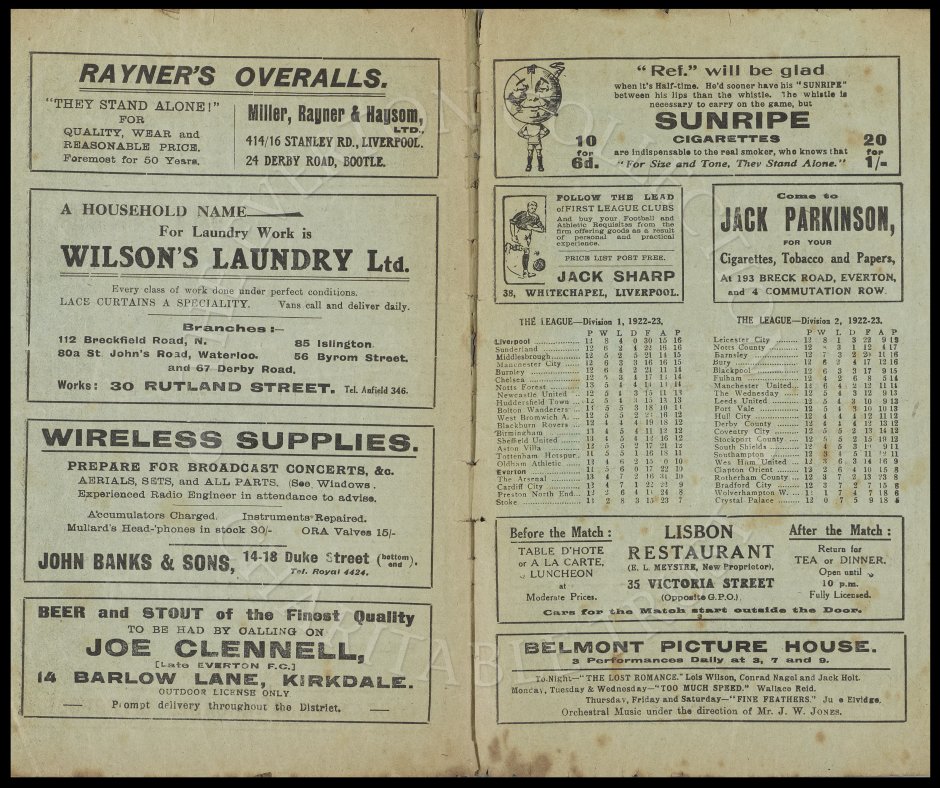 RAYNER'S OVERALLS.
"THEY STAND ALONE!"
FOR
QUALITY, WEAR and
REASONABLE PRICE.
Foremost for 50 Years.
Miller, Rayner & Haysom,
LTD.,
414/16 STANLEY RD., LIVERPOOL.
24 DERBY ROAD, BOOTLE.
A HOUSEHOLD NAME
For Laundry Work is
WILSON'S LAUNDRY Ltd.
Every class of work done under perfect conditions.
LACE CURTAINS A SPECIALITY. Vans call and deliver daily.
Branches:-
112 Breckfield Road, N. 85 Islington.
80a St. John's Road, Waterloo. 56 Byrom Street,
and 67 Derby Road.
Works: 30 RUTLAND STREET. Tel. Anfield 346.
WIRELESS SUPPLIES.
PREPARE FOR BROADCAST CONCERTS, &c.
AERIALS, SETS, and ALL PARTS. (See Windows.
Experienced Radio Engineer in attendance to advise.
Accumulators Charged. Instruments Repaired.
Mullard's Head-'phones in stock 30/- ORA Valves 15/-
JOHN BANKS & SONS, 14-18 Duke Street (bottom end).
Tel. Royal 4424.
BEER and STOUT of the Finest Quality
TO BE HAD BY CALLING ON
JOE CLENNELL,
[Late EVERTON F.C.]
14 BARLOW LANE, KIRKDALE.
OUTDOOR LICENSE ONLY
— Prompt delivery throughout the District. —
"Ref." will be glad
when it's Half-time. He'd sooner have his "SUNRIPE"
between his lips than the whistle. The whistle is
necessary to carry on the game, but
SUNRIPE
CIGARETTES
10 for 6d.
20 for 1/-
are indispensable to the real smoker, who knows that
"For Size and Tone, They Stand Alone."
FOLLOW THE LEAD
of FIRST LEAGUE CLUBS
And buy your Football and
Athletic Requisites from the
firm offering goods as a result
of personal and practical
experience.
PRICE LIST POST FREE.
JACK SHARP
38, WHITECHAPEL, LIVERPOOL.
Come to
JACK PARKINSON,
FOR YOUR
Cigarettes, Tobacco and Papers,
At 193 BRECK ROAD, EVERTON,
and 4 COMMUTATION ROW.
THE LEAGUE—Division 1, 1922-23.
P W L D F A P
Liverpool 12 8 4 0 30 15 16
Sunderland 12 6 2 4 22 16 16
Middlesbrough 12 5 2 5 21 14 15
Manchester City 12 6 3 3 16 16 15
Burnley 12 6 4 2 21 11 14
Chelsea 12 5 3 4 17 14 14
Notts Forest 13 5 4 4 14 14
Newcastle United 12 5 4 3 15 11 13
Huddersfield Town 12 5 4 3 15 13 13
Bolton Wanderers 5 3 18 10
West Bromwich A. 12 5 5 2 16 12
Blackburn Rovers 12 4 4 4 19 18 12
Birmingham 13 4 5 4 11 12 12
Sheffield United 13 4 5 4 12 16 12
Aston Villa 12 5 5 2 17 21 12
Tottenham Hotspur 11 5 5 1 16 18 11
Oldham Athletic 13 4 6 2 15 10
Everton 11 5 6 0 17 22 10
The Arsenal 13 4 7 2 16 10
Cardiff City 12 4 7 1 22 9
Preston North End 12 2 6 4 24 8
Stoke 2 8 3 15 23 7
THE LEAGUE—Division 2, 1922-23.
P W L D F A P
Leicester City 12 8 1 3 22 9 19
Notts County 12 3 1 12 4 17
Barnsley 12 7 3 2 11 16
Bury 12 6 2 4 17 12 16
Blackpool 12 6 3 3 17 9 15
Fulham 12 4 2 6 8 5 14
Manchester United 12 6 4 2 12 11 14
The Wednesday 12 5 4 3 12 9 13
Leeds United 12 5 4 3 10 9 13
Port Vale 12 5 4 3 10 10 13
Hull City 12 4 4 4 12 11 12
Derby County 12 4 4 4 12 13 12
Coventry City 12 5 5 2 13 14 12
Stockport County 12 5 5 2 15 19 12
South Shields 12 4 5 3 9 11
Southampton 12 3 4 5 11 12 11
Wes Ham United 12 3 6 3 14 16 9
Clapton Orient 13 2 6 4 10 15 8
Rotherham County 12 3 7 2 13 23 8
Bradford City 12 3 7 2 7 15 8
Wolverhampton W. 1 7 4 7 18 6
Crystal Palace 12 0 7 5 9 18 5
Before the Match:
TABLE D'HOTE
or A LA CARTE,
LUNCHEON
at
Moderate Prices.
LISBON
RESTAURANT
(E. L. MEYSTRE, New Proprietor).
35 VICTORIA STREET
(Opposite G.P.O.)
After the Match:
Return for
TEA or DINNER.
Open until
10 p.m.
Fully Licensed.
Cars for the Match start outside the Door.
BELMONT PICTURE HOUSE.
3 Performances Daily at 3, 7 and 9.
To-Night—"THE LOST ROMANCE." Lois Wilson, Conrad Nagel and Jack Holt.
Monday, Tuesday & Wednesday—"TOO MUCH SPEED." Wallace Reid.
Thursday, Friday and Saturday—"FINE FEATHERS." Ju e Elvidge.
Orchestral Music under the direction of Mr. J. W. JONES.